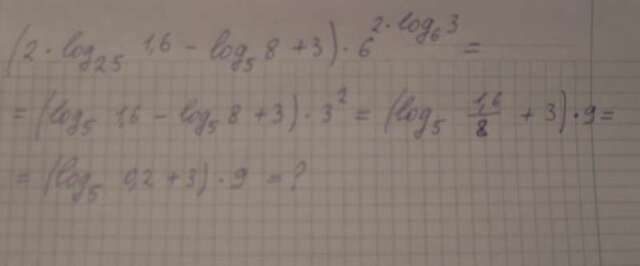 (2 · log₂₅ 1,6 − log₅ 8 + 3) · 6^(2·log₆3) =
= (log₅ 1,6 − log₅ 8 + 3) · 3² = (log₅ 1,6/8 + 3) · 9 =
= (log₅ 0,2 + 3) · 9 = ?